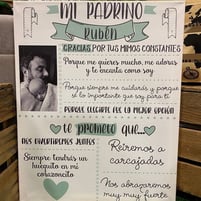 MI PADRINO
Rubén
GRACIAS POR TUS MIMOS CONSTANTES
Porque me quieres mucho, me adoras
y te encanta como soy
Porque siempre me cuidarás y porque
sé lo importante que soy para ti
PORQUE ELEGIRTE FUE LA MEJOR OPCIÓN
te prometo que...
NOS DIVERTIREMOS JUNTOS
Siempre tendrás un
huequito en mi
corazoncito
Reiremos a
carcajadas
Nos abrazaremos
muy muy fuerte